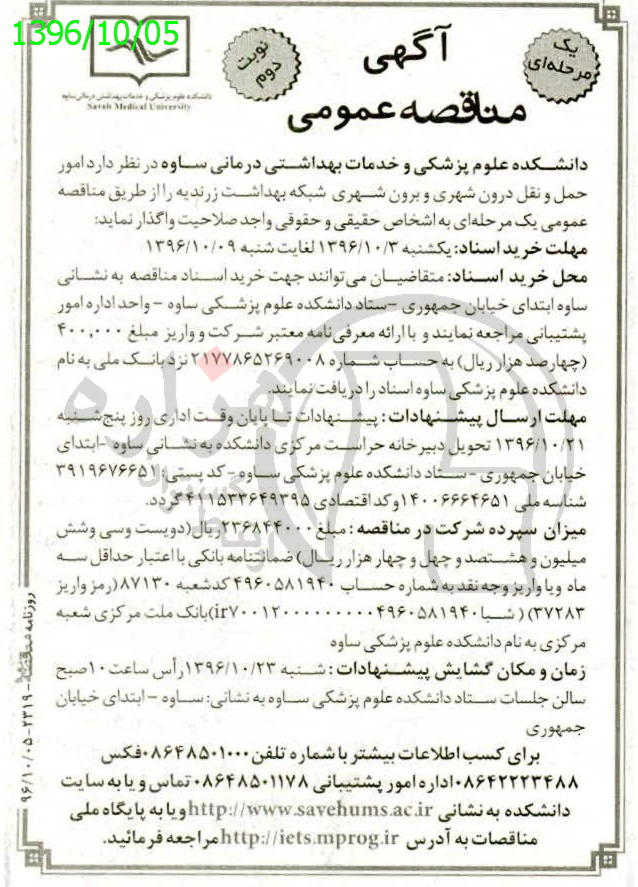 1396/10/05
دانشکده علوم پزشکی و خدمات بهداشتی درمانی ساوه
Saveh Medical University
نوبت دوم
آگهی
یک مرحله‌ای
مناقصه عمومی
دانشکده علوم پزشکی و خدمات بهداشتی درمانی ساوه در نظر دارد امور
حمل و نقل درون شهری و برون شهری شبکه بهداشت زرندیه را از طریق مناقصه
عمومی یک مرحله‌ای به اشخاص حقیقی و حقوقی واجد صلاحیت واگذار نماید:
مهلت خرید اسناد: یکشنبه ۱۳۹۶/۱۰/۳ لغایت شنبه ۱۳۹۶/۱۰/۰۹
محل خرید اسناد: متقاضیان می‌توانند جهت خرید اسناد مناقصه به نشانی
ساوه ابتدای خیابان جمهوری - ستاد دانشکده علوم پزشکی ساوه - واحد اداره امور
پشتیبانی مراجعه نمایند و با ارائه معرفی نامه معتبر شرکت و واریز مبلغ ۴۰۰,۰۰۰
(چهارصد هزار ریال) به حساب شماره ۲۱۷۷۸۶۵۲۶۹۰۰۸ نزد بانک ملی به نام
دانشکده علوم پزشکی ساوه اسناد را دریافت نمایند.
مهلت ارسال پیشنهادات: پیشنهادات تا پایان وقت اداری روز پنج‌شنبه
۱۳۹۶/۱۰/۲۱ تحویل دبیرخانه حراست مرکزی دانشکده به نشانی ساوه - ابتدای
خیابان جمهوری - ستاد دانشکده علوم پزشکی ساوه - کد پستی: ۳۹۱۹۶۷۶۶۵۱
شناسه ملی ۱۴۰۰۶۶۶۴۶۵۱ و کد اقتصادی ۴۱۱۵۳۳۶۴۹۳۹۵ گردد.
میزان سپرده شرکت در مناقصه: مبلغ ۲۳۶۸۴۴۰۰۰ ریال (دویست وسی وشش
میلیون و هشتصد و چهل و چهار هزار ریال) ضمانتنامه بانکی با اعتبار حداقل سه
ماه ویا واریز وجه نقد به شماره حساب ۴۹۶۰۵۸۱۹۴۰ کدشعبه ۸۷۱۳۰ (رمز واریز
۳۷۲۸۳) (شبا ir۷۰۰۱۲۰۰۰۰۰۰۰۰۰۰۴۹۶۰۵۸۱۹۴۰) بانک ملت مرکزی شعبه
مرکزی به نام دانشکده علوم پزشکی ساوه
زمان و مکان گشایش پیشنهادات: شنبه ۱۳۹۶/۱۰/۲۳ رأس ساعت ۱۰ صبح
سالن جلسات ستاد دانشکده علوم پزشکی ساوه به نشانی: ساوه - ابتدای خیابان
جمهوری
برای کسب اطلاعات بیشتر با شماره تلفن ۰۸۶۴۸۵۰۱۰۰۰ فکس
۰۸۶۴۲۲۲۳۴۸۸ اداره امور پشتیبانی ۰۸۶۴۸۵۰۱۱۷۸ تماس و یا به سایت
دانشکده به نشانی http://www.savehums.ac.ir و یا به پایگاه ملی
مناقصات به آدرس http://iets.mprog.ir مراجعه فرمائید.
روزنامه مناقصه - ۲۳۱۹ - ۹۶/۱۰/۰۵
هزاره